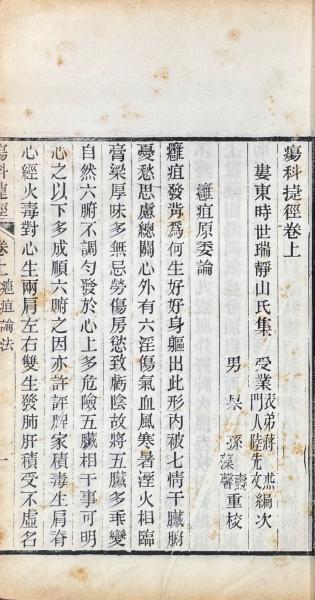 瘍科捷徑卷上
婁東時世瑞靜山氏集
受業表弟蔣杰編次
門人陸先文
男杲孫藻馨重校
癰疽原委論
癰疽發背為何生好好身軀出此形內被七情干臟腑
憂愁思慮總關心外有六淫傷氣血風寒暑溼火相臨
膏粱厚味多無忌勞傷房慾致虧陰故將五臟多乖變
自然六腑不調勻發於心上多危險五臟相干事可明
心之以下多成順六腑之因亦許評醫家積毒生肩脊
心經火毒對心生兩肩左右雙生發肺肝積受不虛名
瘍科捷徑 卷上 癰疽論法 一